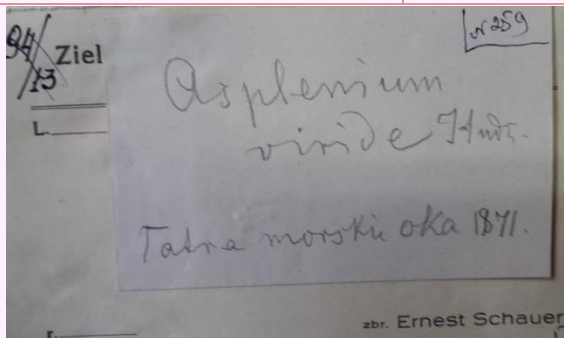 94/13 Ziel
№ 259
L.
Asplenium
viride Huds.
Tatra morskie oka 1871.
zbr. Ernest Schauer